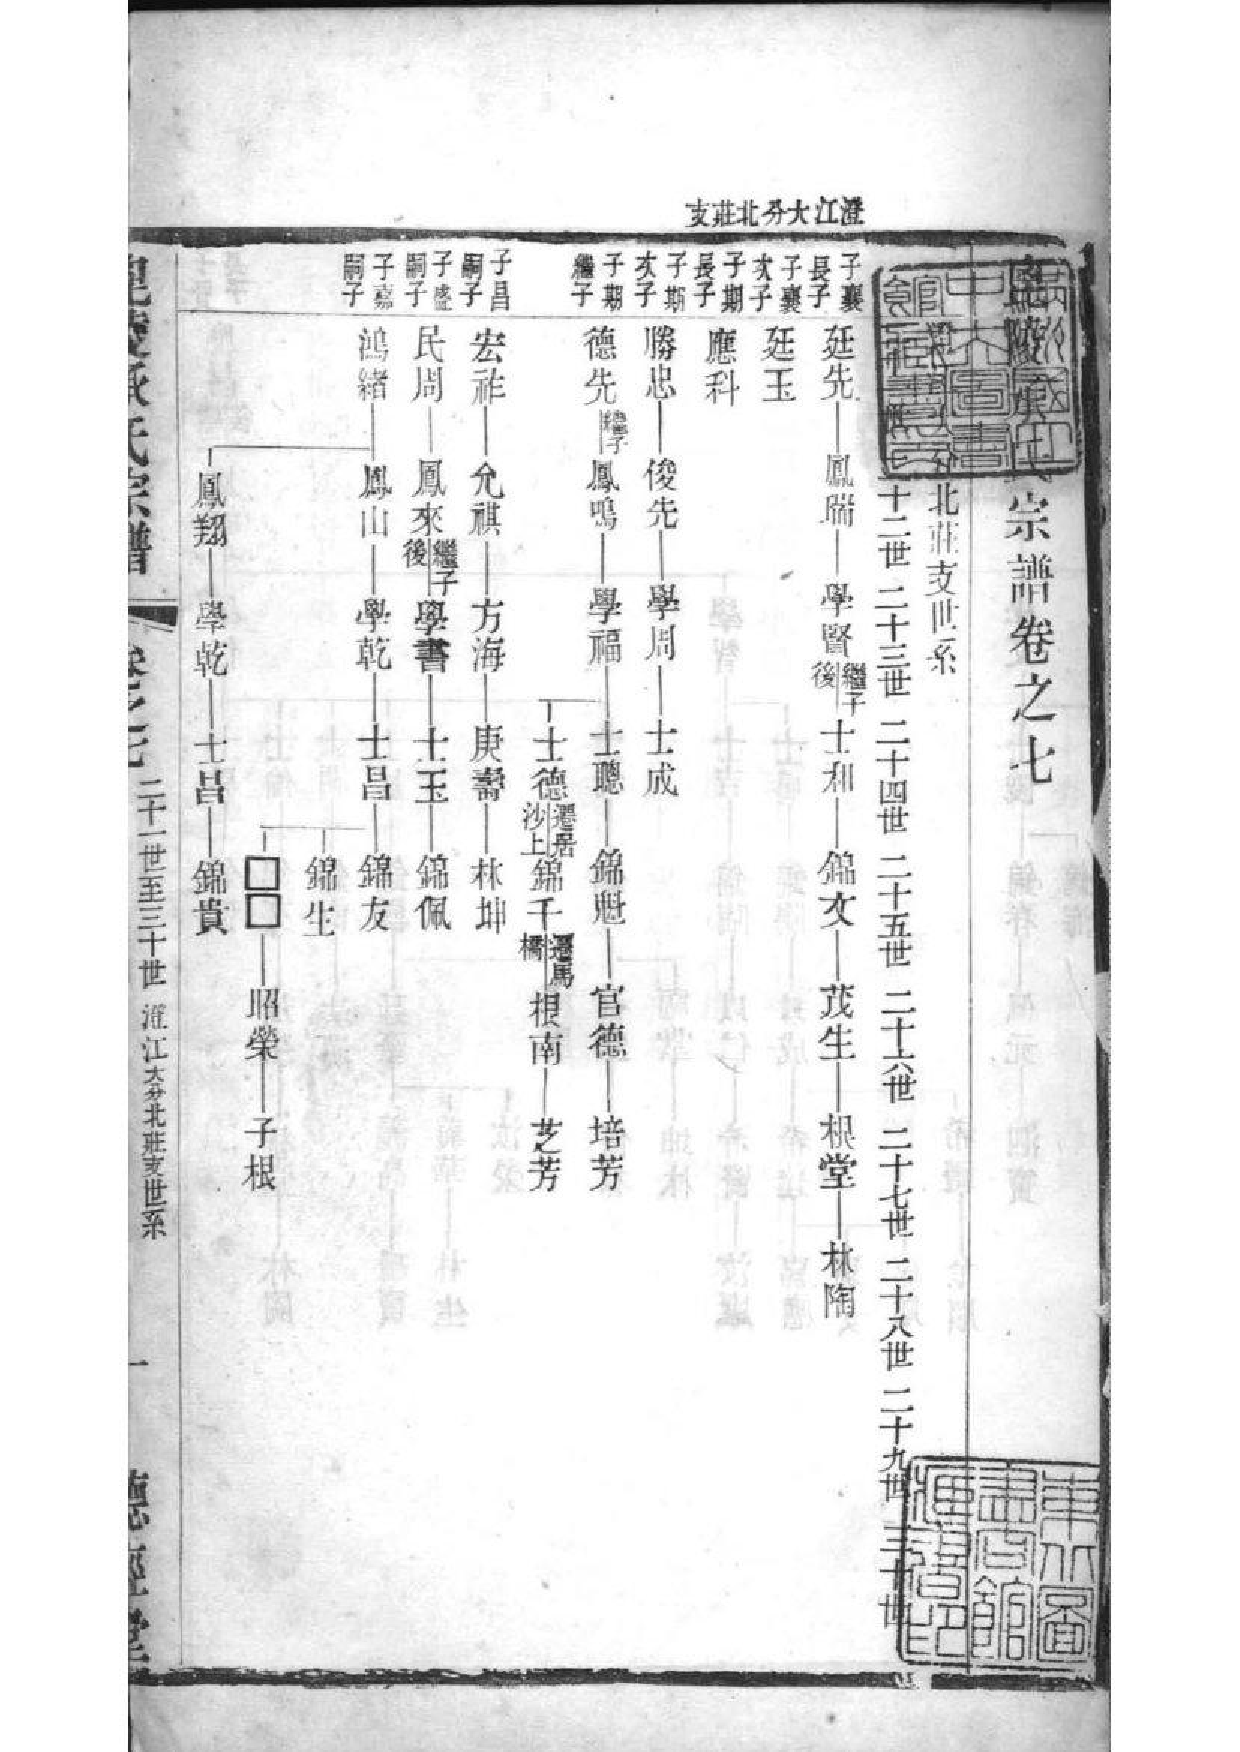 澄江大分北莊支
毘陵承氏宗譜卷之七
北莊支世系
十二世 二十三世 二十四世 二十五世 二十六世 二十七世 二十八世 二十九世 三十世
子襄長子 廷先 鳳瑞 學賢 繼子後 士和 錦文 茂生 根堂 林陶
子襄次子 廷玉
子期長子 應科
子期次子 勝忠 俊先 學周 士成
子期繼子 德先 繼子 鳳鳴 學福 士聰 錦魁 官德 培芳
士德 遷居沙上 錦千 遷馬橋 根南 芝芳
子昌嗣子 宏祚 允祺 方海 庚壽 林坤
子盛嗣子 民周 鳳來 繼子後 學書 士玉 錦佩
子嘉嗣子 鴻緒 鳳山 學乾 士昌 錦友
錦生
□□ 昭榮 子根
鳳翔 學乾 士昌 錦貴
毘陵承氏宗譜 卷之七 二十一世至三十世 澄江大分北莊支世系 一